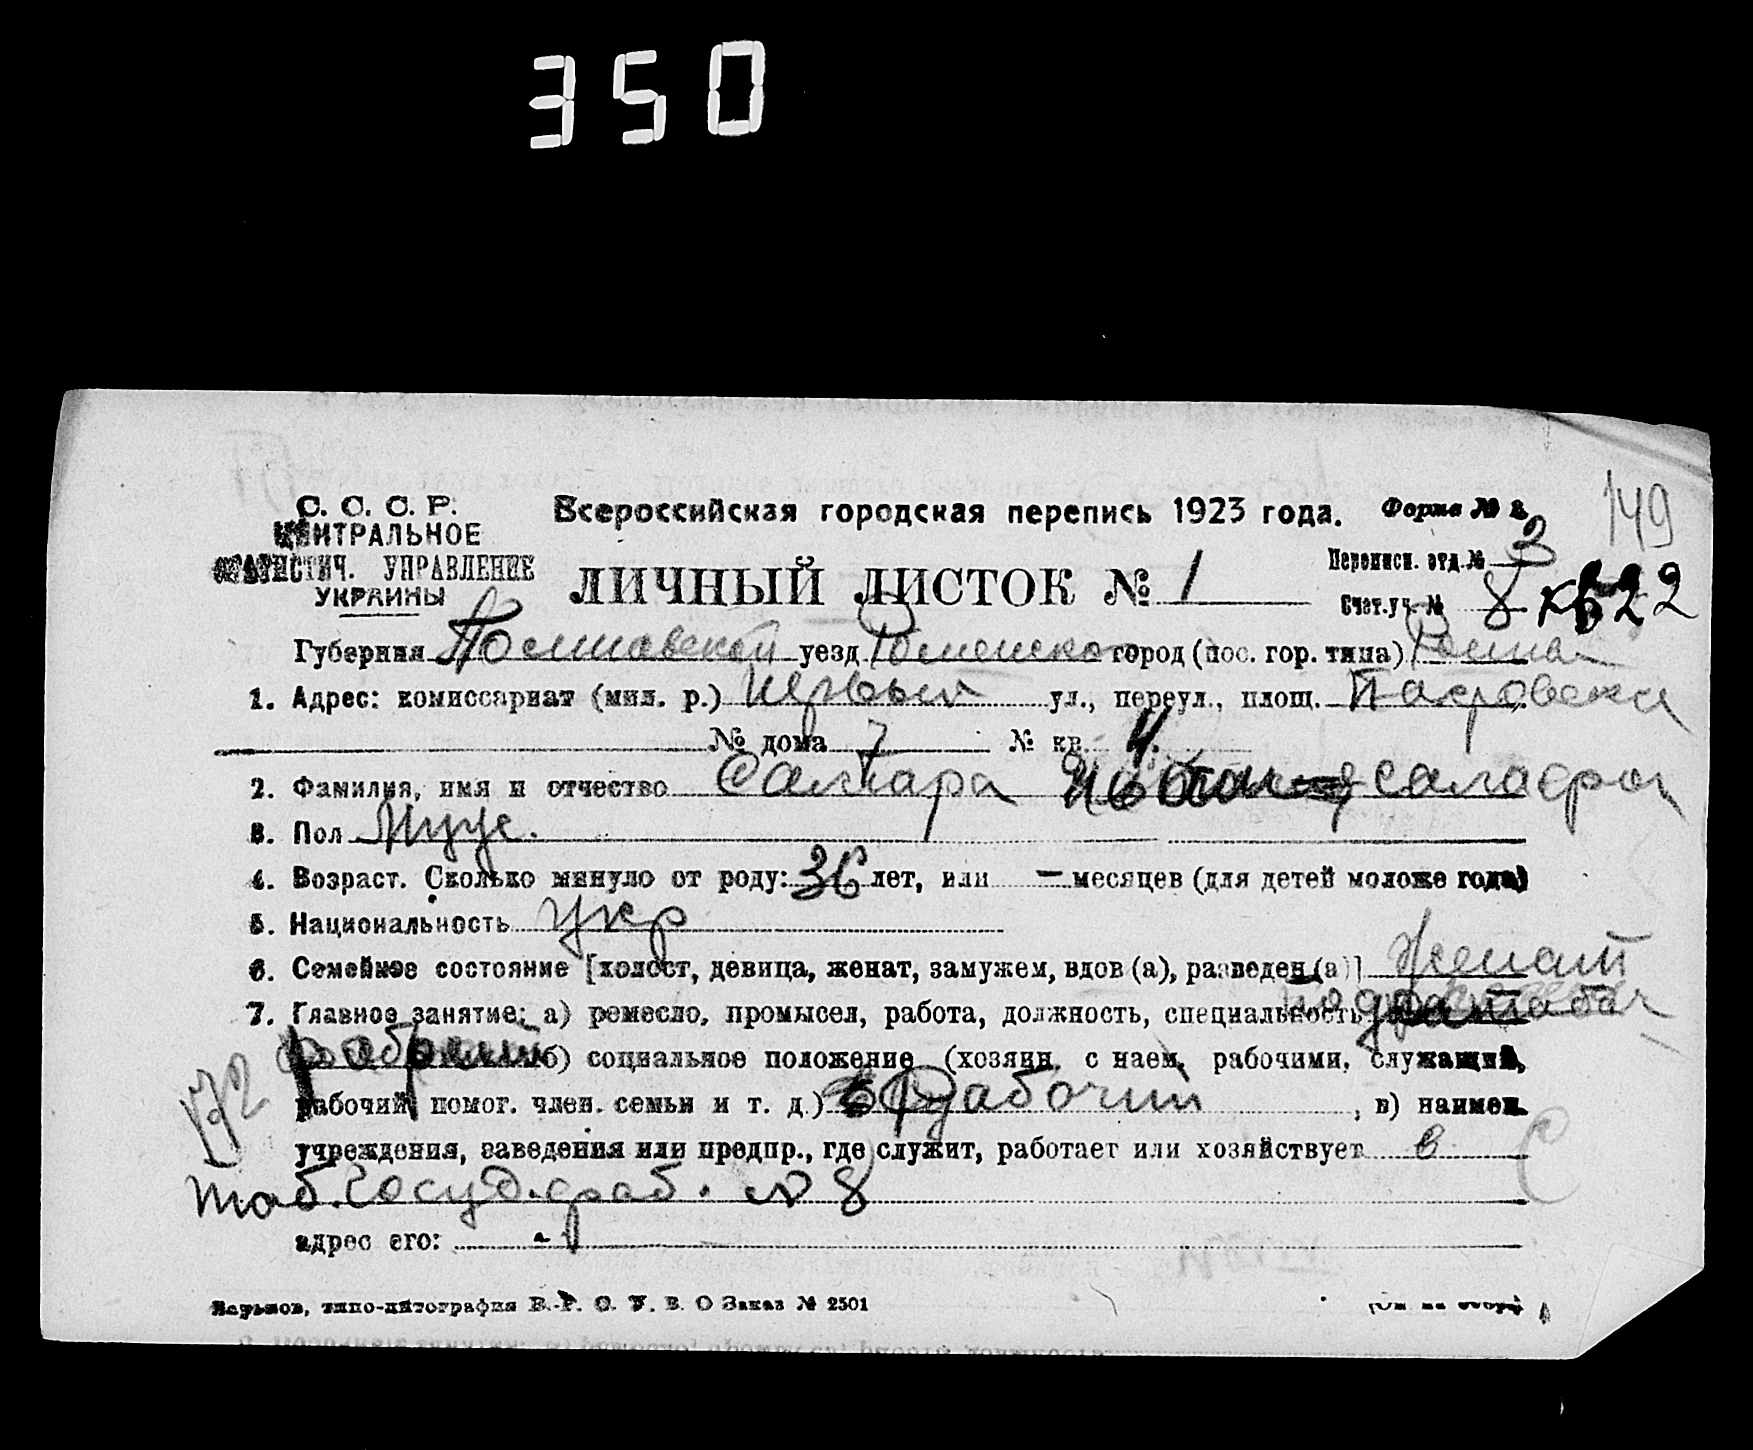 350
149
С. С. С. Р.
ЦЕНТРАЛЬНОЕ
СТАТИСТИЧ. УПРАВЛЕНИЕ
УКРАИНЫ
Всероссийская городская перепись 1923 года. Форма № 2.
ЛИЧНЫЙ ЛИСТОК № 1
Переписн. отд. № 3
Счет. уч. № 8 622
Губерния Полтавской уезд Роменско город (пос. гор. типа) Ромны
1. Адрес: комиссариат (мил. р.) Первый ул., переул., площ. Пакровска
№ дома 7 № кв. 4.
2. Фамилия, имя и отчество
3. Пол Муж.
4. Возраст. Сколько минуло от роду: 36 лет, или — месяцев (для детей моложе года)
5. Национальность укр
6. Семейное состояние [холост, девица, женат, замужем, вдов (а), разведен (а)] Женат
7. Главное занятие: а) ремесло, промысел, работа, должность, специальность
б) социальное положение (хозяин с наем. рабочими, служащий,
рабочий, помог. член. семьи и т. д.) Рабочий, в) наимен.
учреждения, заведения или предпр., где служит, работает или хозяйствует в
таб. Госуд. фаб. № 8
адрес его:
Харьков, типо-литография В. О Заказ № 2501